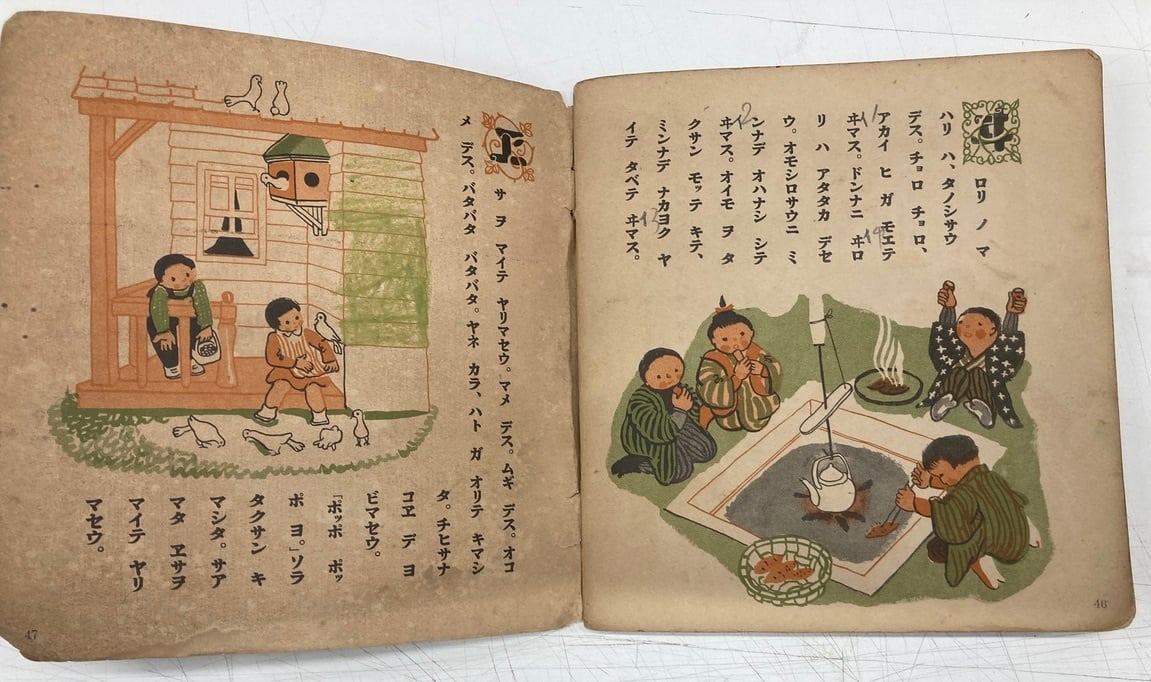 ヰロリ ノ マ
ハリ ハ、タノシサウ
デス。チョロ チョロ、
アカイ ヒ ガ モエテ
11
ヰマス。ドンナニ ヰロ
リ ハ アタタカ デセ
ウ。オモシロサウニ ミ
ンナデ オハナシ シテ
12
ヰマス。オイモ ヲ タ
クサン モッテ キテ、
ミンナデ ナカヨク ヤ
13
イテ タベテ ヰマス。
46
ヱサ ヲ マイテ ヤリマセウ。マメ デス。ムギ デス。オコ
メ デス。バタバタ バタバタ。ヤネ カラ、ハト ガ オリテ キマシ
タ。チヒサナ
コヱ デ ヨ
ビマセウ。
「ポッポ ポッ
ポ ヨ。」ソラ
タクサン キ
マシタ。サア
マタ ヱサヲ
マイテ ヤリ
マセウ。
47